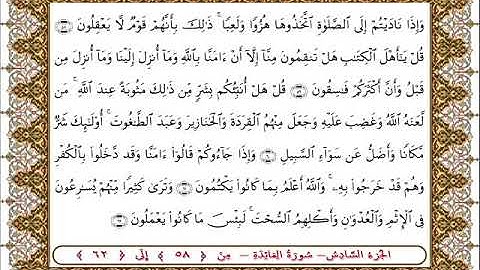 وَإِذَا نَادَيْتُمْ إِلَى ٱلصَّلَوٰةِ ٱتَّخَذُوهَا هُزُوًا وَلَعِبًا ۚ ذَٰلِكَ بِأَنَّهُمْ قَوْمٌ لَّا يَعْقِلُونَ ﴿٥٨﴾
قُلْ يَٰٓأَهْلَ ٱلْكِتَٰبِ هَلْ تَنقِمُونَ مِنَّآ إِلَّآ أَنْ ءَامَنَّا بِٱللَّهِ وَمَآ أُنزِلَ إِلَيْنَا وَمَآ أُنزِلَ مِن
قَبْلُ وَأَنَّ أَكْثَرَكُمْ فَٰسِقُونَ ﴿٥٩﴾ قُلْ هَلْ أُنَبِّئُكُم بِشَرٍّ مِّن ذَٰلِكَ مَثُوبَةً عِندَ ٱللَّهِ ۚ مَن
لَّعَنَهُ ٱللَّهُ وَغَضِبَ عَلَيْهِ وَجَعَلَ مِنْهُمُ ٱلْقِرَدَةَ وَٱلْخَنَازِيرَ وَعَبَدَ ٱلطَّٰغُوتَ ۚ أُو۟لَٰٓئِكَ شَرٌّ
مَّكَانًا وَأَضَلُّ عَن سَوَآءِ ٱلسَّبِيلِ ﴿٦٠﴾ وَإِذَا جَآءُوكُمْ قَالُوٓا۟ ءَامَنَّا وَقَد دَّخَلُوا۟ بِٱلْكُفْرِ
وَهُمْ قَدْ خَرَجُوا۟ بِهِۦ ۚ وَٱللَّهُ أَعْلَمُ بِمَا كَانُوا۟ يَكْتُمُونَ ﴿٦١﴾ وَتَرَىٰ كَثِيرًا مِّنْهُمْ يُسَٰرِعُونَ
فِى ٱلْإِثْمِ وَٱلْعُدْوَٰنِ وَأَكْلِهِمُ ٱلسُّحْتَ ۚ لَبِئْسَ مَا كَانُوا۟ يَعْمَلُونَ ﴿٦٢﴾
الجزء السادس – سورة المائدة – من ﴿ ٥٨ ﴾ إلى ﴿ ٦٢ ﴾